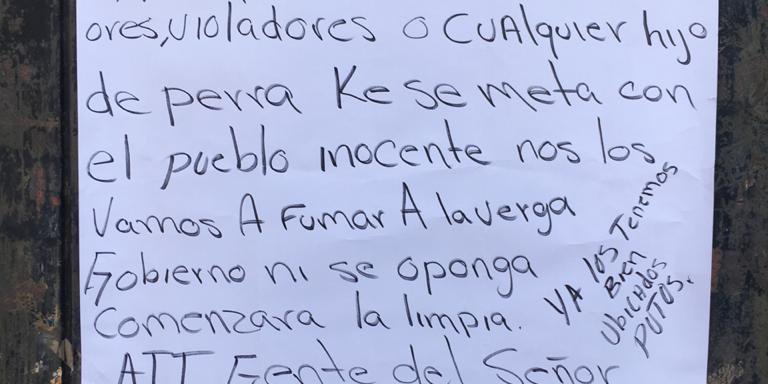 ores,violadores o cualquier hijo
de perra Ke se meta con
el pueblo inocente nos los
Vamos A Fumar A la verga
Gobierno ni se oponga
Comenzara la limpia.
YA los Tenemos
Bien
Ubicados
PUTOS.
ATT Gente del Señor